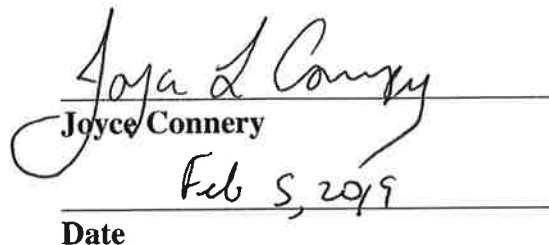 Joyce L Connery
Joyce Connery
Feb 5, 2019
Date